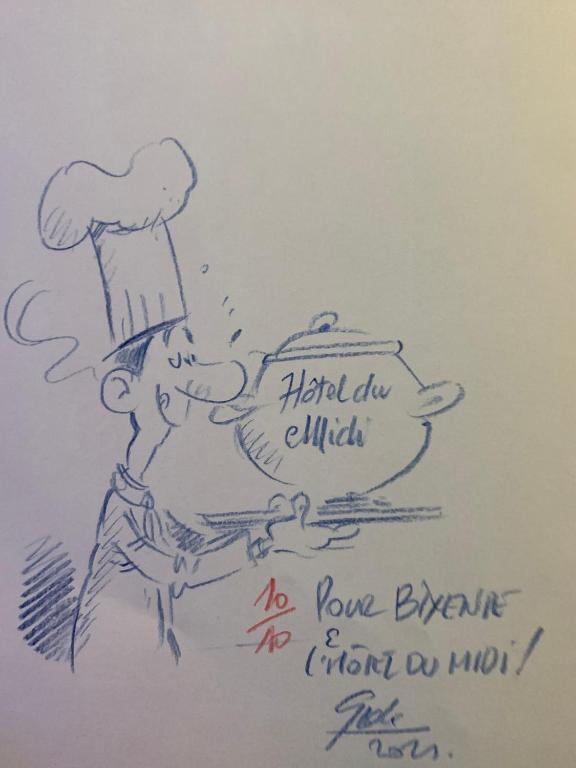 Hôtel du
Midi
10
10
POUR BIXENTE
&
L'HÔTEL DU MIDI !
2021.